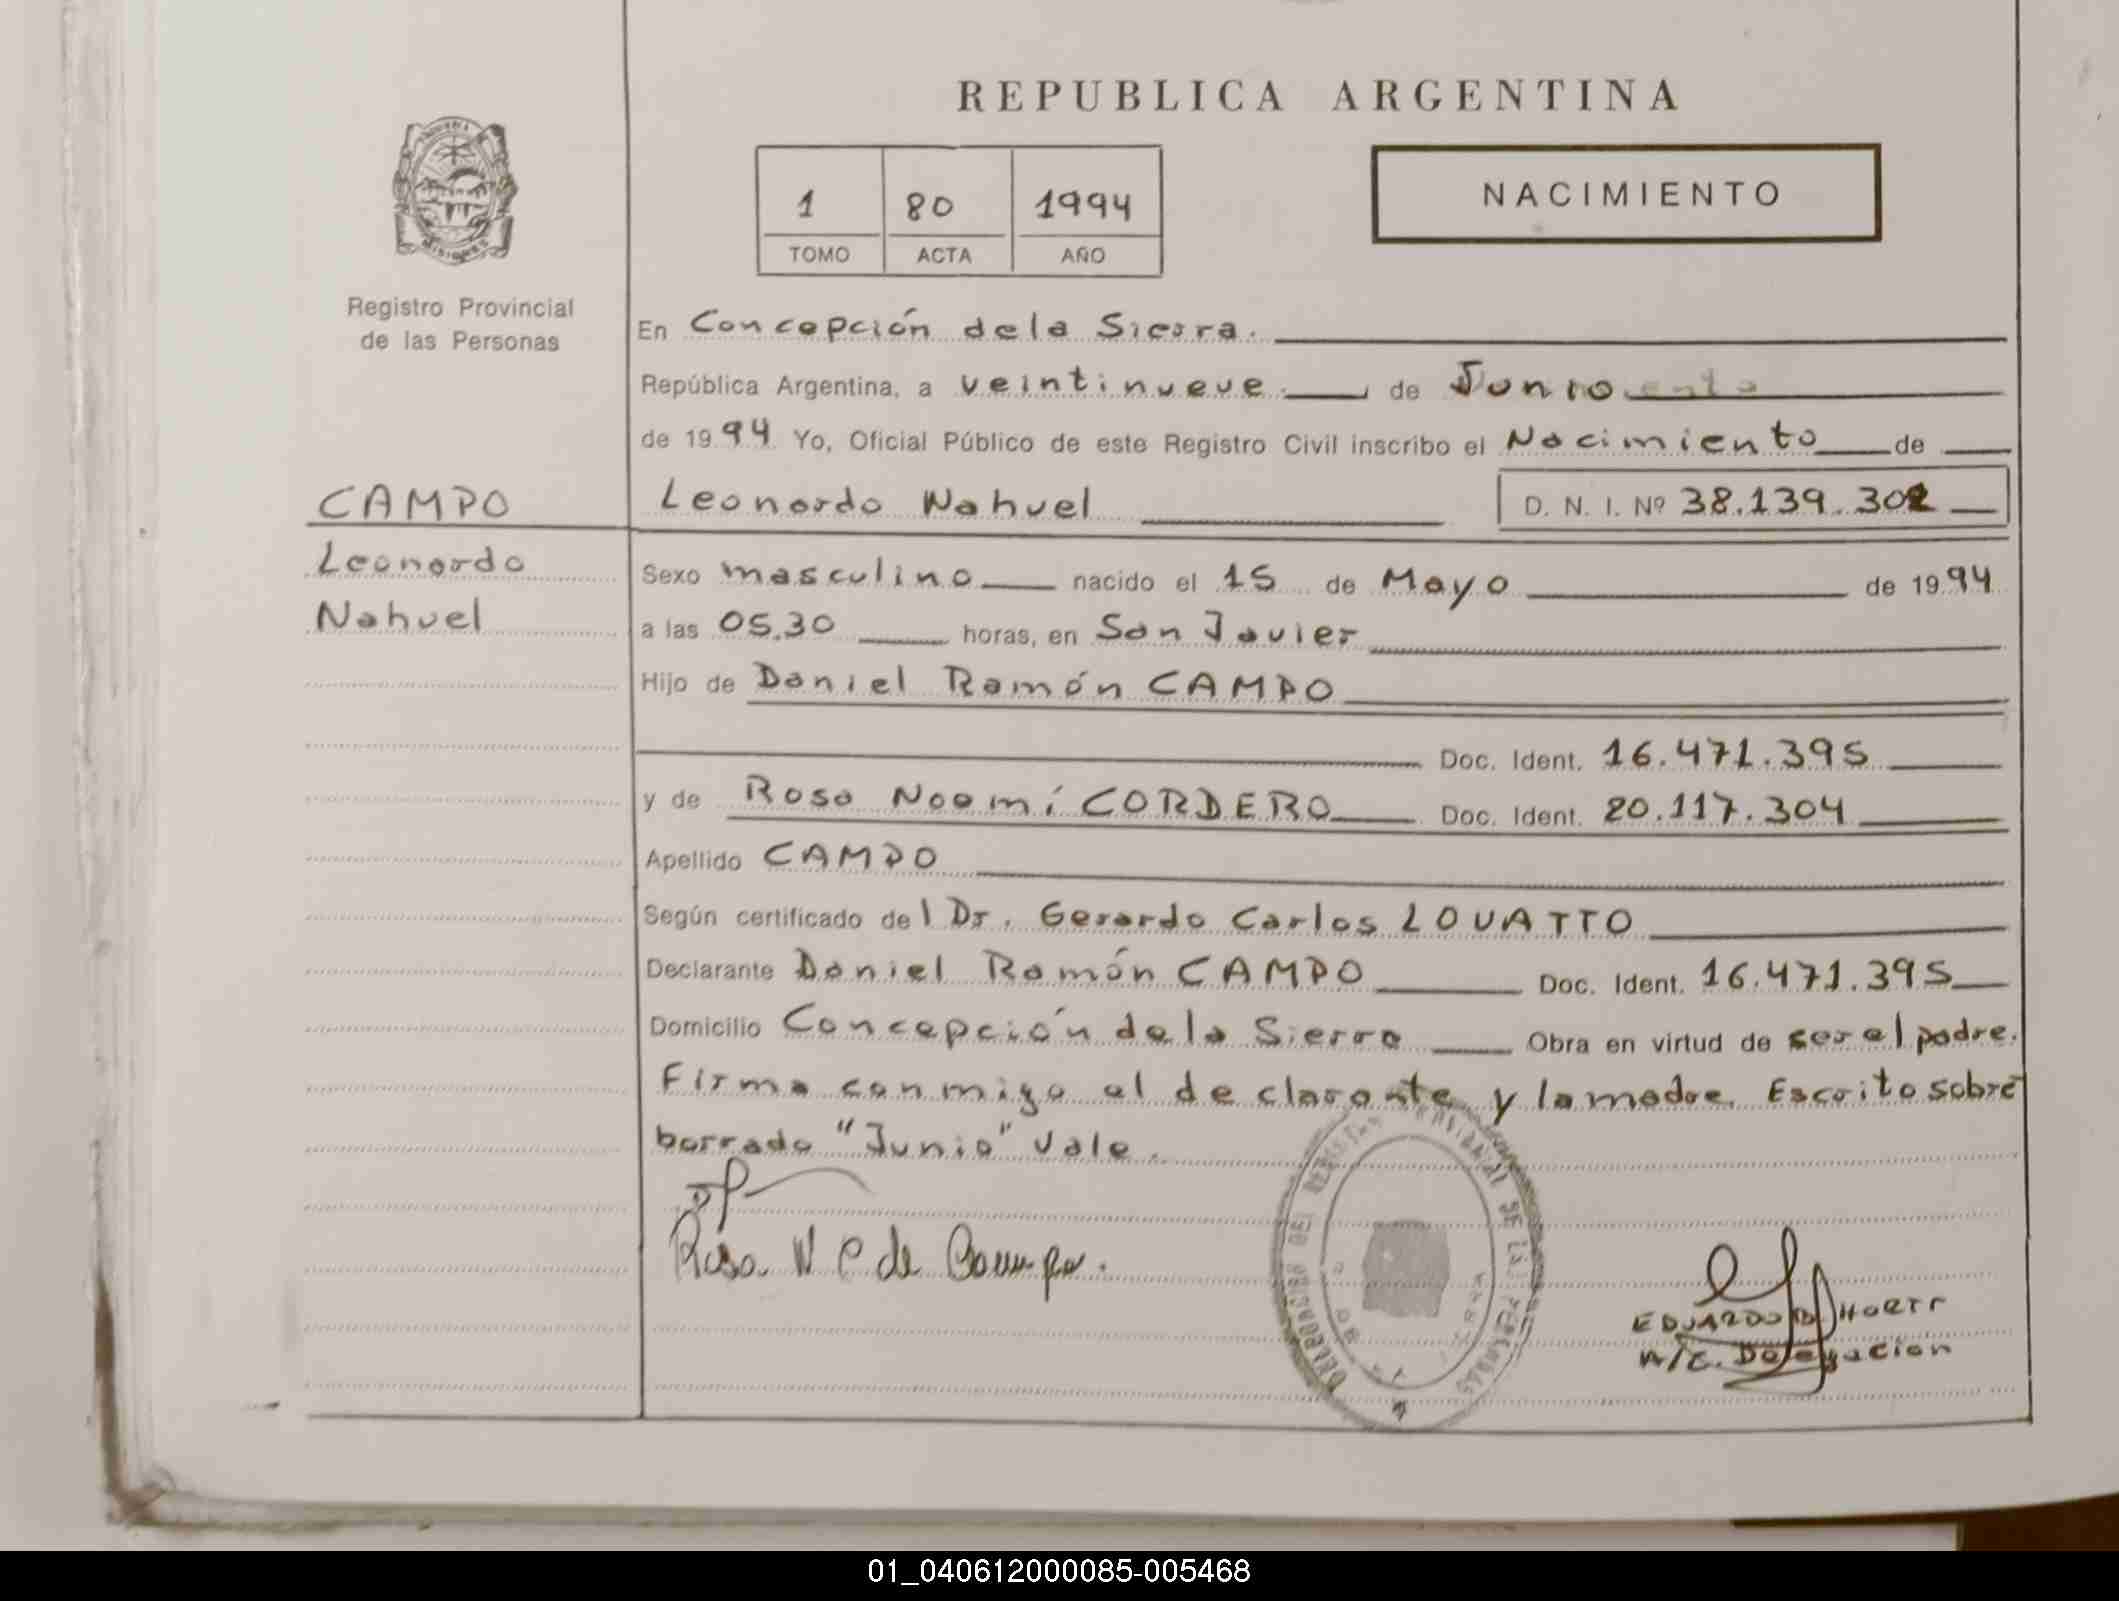 REPUBLICA ARGENTINA
1 80 1994
TOMO ACTA AÑO
NACIMIENTO
Registro Provincial
de las Personas
En Concepción de la Sierra.
República Argentina, a veintinueve de Junio
de 1994 Yo, Oficial Público de este Registro Civil inscribo el Nacimiento de
CAMPO
Leonardo
Nahuel
Leonardo Nahuel D. N. I. Nº 38.139.302
Sexo masculino nacido el 15 de Mayo de 1994
a las 05.30 horas, en San Javier
Hijo de Daniel Ramón CAMPO
Doc. Ident. 16.471.395
y de Rosa Noemí CORDERO Doc. Ident. 20.117.304
Apellido CAMPO
Según certificado del Dr. Gerardo Carlos LOVATTO
Declarante Daniel Ramón CAMPO Doc. Ident. 16.471.395
Domicilio Concepción de la Sierra Obra en virtud de ser el padre.
Firma conmigo el declarante y la madre. Escrito sobre
borrado "Junio" Vale.
Rosa N C de Campo.
DELEGACION DEL REGISTRO PROVINCIAL DE LAS PERSONAS
EDUARDO
A/C. Delegacion
01_040612000085-005468